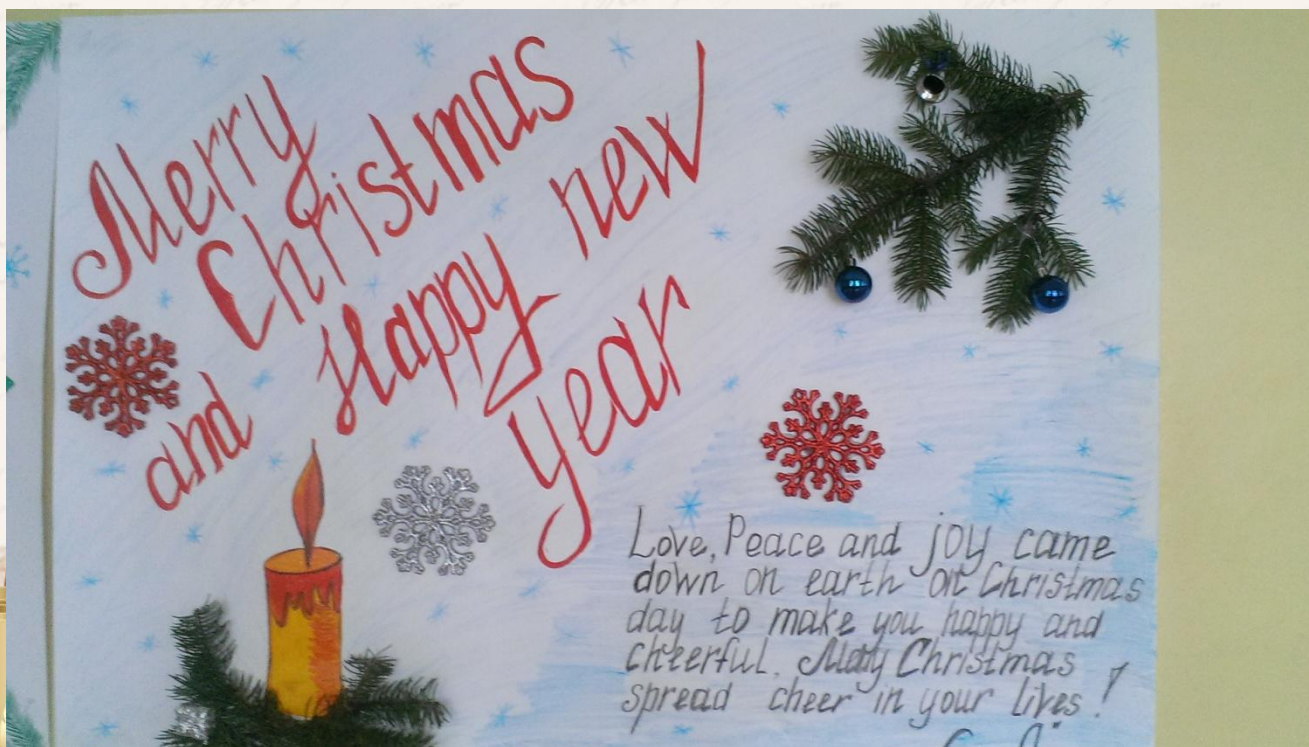 Merry
Christmas
and Happy new
year
Love, Peace and joy came
down on earth on Christmas
day to make you happy and
cheerful. Christmas
spread cheer in your lives!